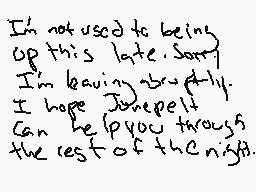 I'm not used to being
up this late. Sorry
I'm leaving abruptly.
I hope Jonepelt
can help you through
the rest of the night.